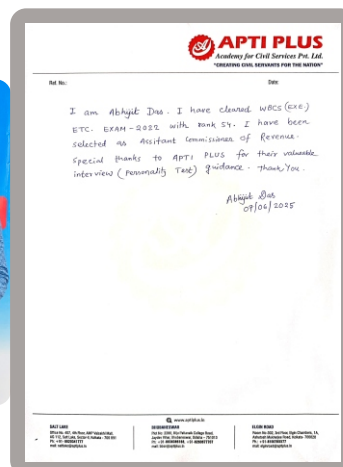 APTI PLUS
Academy for Civil Services Pvt. Ltd.
"CREATING CIVIL SERVANTS FOR THE NATION"
Ref. No.: Date:
I am Abhijit Das. I have cleared WBCS (EXE.)
ETC. EXAM-2022 with rank 54. I have been
selected as Assitant Commissioner of Revenue.
Special thanks to APTI PLUS for their valuable
interview (Personality Test) guidance. Thank You.
Abhijit Das
07/06/2025
www.aptiplus.in
SALT LAKE BHUBANESWAR ELGIN ROAD